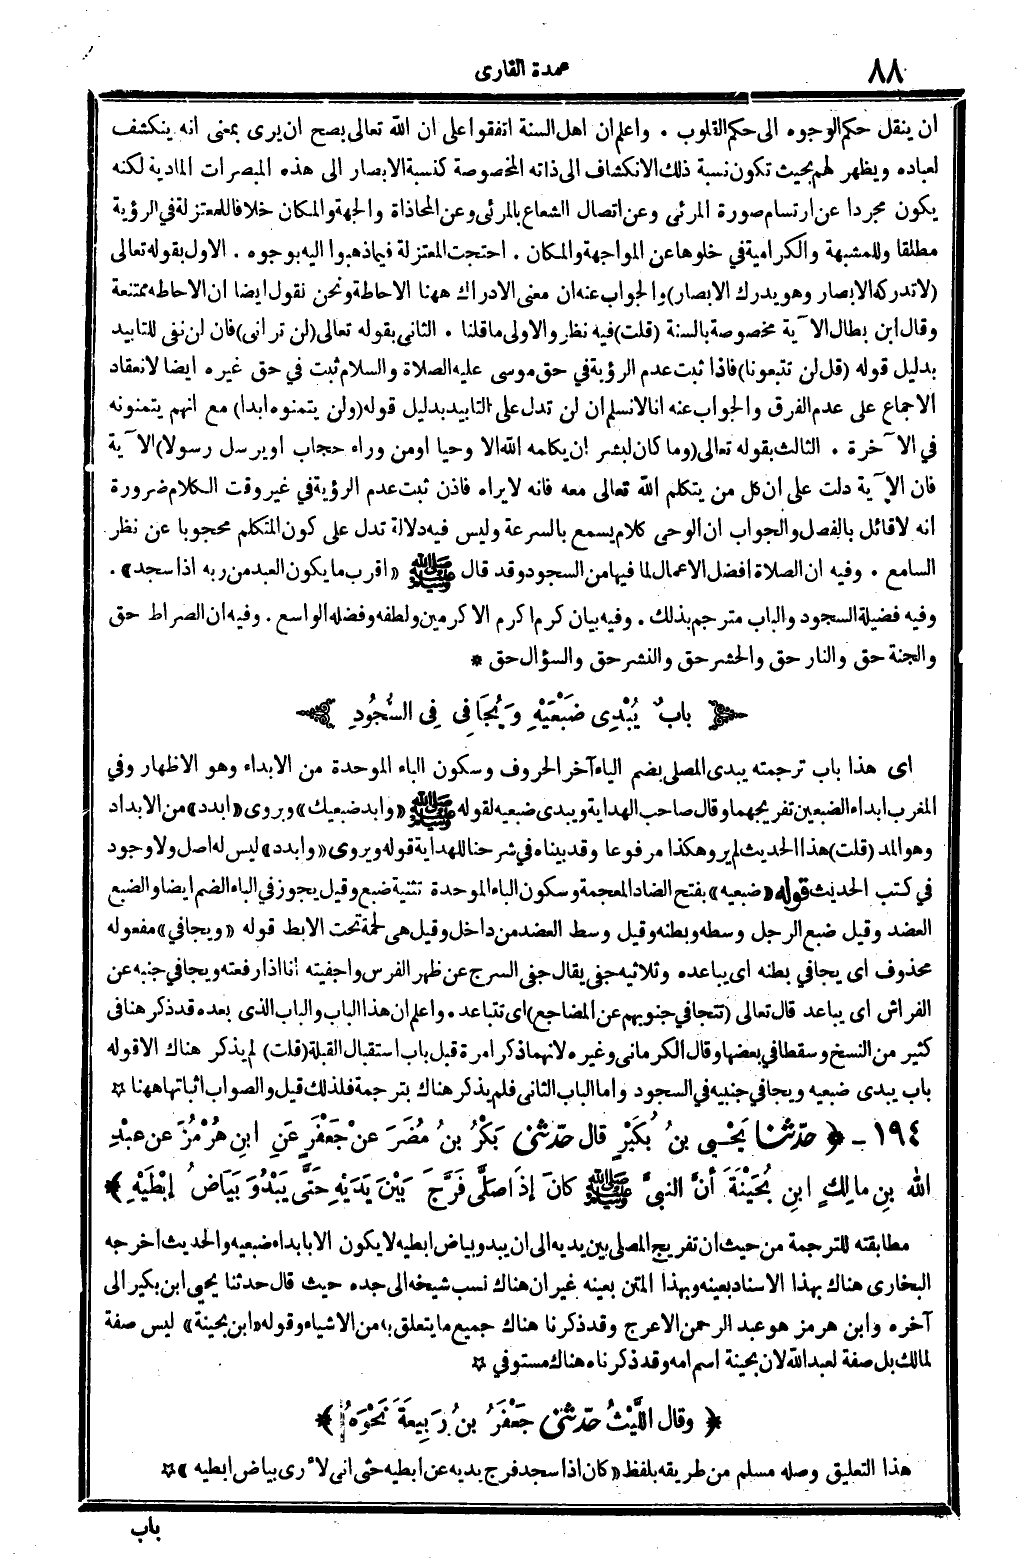 ٨٨
عمدة القارى
ان ينقل حكم الوجوه الى حكم القلوب . واعلم ان اهل السنة اتفقوا على ان الله تعالى يصح ان يرى بمعنى انه ينكشف
لعباده ويظهر لهم بحيث تكون نسبة ذلك الانكشاف الى ذاته المخصوصة كنسبة الابصار الى هذه المبصرات المادية لكنه
يكون مجردا عن ارتسام صورة المرئى وعن اتصال الشعاع بالمرئى وعن المحاذاة والجهة والمكان خلافا للمعتزلة في الرؤية
مطلقا وللمشبهة والكرامية في خلوها عن المواجهة والمكان . احتجت المعتزلة فيما ذهبوا اليه بوجوه . الاول بقوله تعالى
(لا تدركه الابصار وهو يدرك الابصار) والجواب عنه ان معنى الادراك ههنا الاحاطة ونحن نقول ايضا ان الاحاطه ممتنعة
وقال ابن بطال الآية مخصوصة بالسنة (قلت) فيه نظر والاولى ما قلنا . الثانى بقوله تعالى (لن ترانى) فان لن نفى للتابيد
بدليل قوله (قل لن تتبعونا) فاذا ثبت عدم الرؤية في حق موسى عليه الصلاة والسلام ثبت في حق غيره ايضا لانعقاد
الاجماع على عدم الفرق والجواب عنه انالانسلم ان لن تدل على التابيد بدليل قوله (ولن يتمنوه ابدا) مع انهم يتمنونه
في الآخرة . الثالث بقوله تعالى (وما كان لبشر ان يكلمه الله الا وحيا او من وراء حجاب او يرسل رسولا) الآية
فان الآية دلت على ان كل من يتكلم الله تعالى معه فانه لا يراه فاذن ثبت عدم الرؤية في غير وقت الكلام ضرورة
انه لا قائل بالفصل والجواب ان الوحى كلام يسمع بالسرعة وليس فيه دلالة تدل على كون المتكلم محجوبا عن نظر
السامع . وفيه ان الصلاة افضل الاعمال لما فيها من السجود وقد قال ﷺ «اقرب ما يكون العبد من ربه اذا سجد» .
وفيه فضيلة السجود والباب مترجم بذلك . وفيه بيان كرم اكرم الاكرمين ولطفه وفضله الواسع . وفيه ان الصراط حق
والجنة حق والنار حق والحشر حق والنشر حق والسؤال حق *
بابٌ يُبْدِى ضَبْعَيْهِ وَيُجَافِى فِى السُّجُودِ
اى هذا باب ترجمته يبدى المصلى بضم الياء آخر الحروف وسكون الباء الموحدة من الابداء وهو الاظهار وفي
المغرب ابداء الضبعين تفريجهما وقال صاحب الهداية ويبدى ضبعيه لقوله ﷺ «وابد ضبعيك» ويروى «ابدد» من الابداد
وهو المد (قلت) هذا الحديث لم يرو هكذا مرفوعا وقد بيناه في شرحنا للهداية قوله ويروى «وابدد» ليس له اصل ولا وجود
في كتب الحديث قوله «ضبعيه» بفتح الضاد المعجمة وسكون الباء الموحدة تثنية ضبع وقيل يجوز في الباء الضم ايضا والضبع
العضد وقيل ضبع الرجل وسطه وبطنه وقيل وسط العضد من داخل وقيل هى لحمة تحت الابط قوله «ويجافي» مفعوله
محذوف اى يجافي بطنه اى يباعده وثلاثيه جفى يقال جفى السرج عن ظهر الفرس واجفيته انا اذا رفعته ويجافي جنبه عن
الفراش اى يباعد قال تعالى (تتجافى جنوبهم عن المضاجع) اى تتباعد . واعلم ان هذا الباب والباب الذى بعده قد ذكر هنا فى
كثير من النسخ وسقطا في بعضها وقال الكرمانى وغيره لانهما ذكرا مرة قبل باب استقبال القبلة (قلت) لم يذكر هناك الا قوله
باب يبدى ضبعيه ويجافي جنبيه في السجود واما الباب الثانى فلم يذكر هناك بترجمة فلذلك قيل والصواب اثباتها ههنا ☆
١٩٤ - ﴿ حَدَّثَنَا يَحْيَى بنُ بُكَيْرٍ قال حَدَّثَنِى بَكْرُ بنُ مُضَرَ عَنْ جَعْفَرٍ عَنِ ابنِ هُرْمُزَ عن عبْدِ
اللهِ بنِ مالِكٍ ابنِ بُحَيْنَةَ أنَّ النبىَّ ﷺ كانَ إذَا صلَّى فَرَّجَ بَيْنَ يَدَيْهِ حَتَّى يَبْدُوَ بَيَاضُ إبْطَيْهِ ﴾
مطابقته للترجمة من حيث ان تفريج المصلى بين يديه الى ان يبدو بياض ابطيه لا يكون الا بابداء ضبعيه والحديث اخرجه
البخارى هناك بهذا الاسناد بعينه وبهذا المتن بعينه غير ان هناك نسب شيخه الى جده حيث قال حدثنا يحيى ابن بكير الى
آخره وابن هرمز هو عبد الرحمن الاعرج وقد ذكرنا هناك جميع ما يتعلق به من الاشياء وقوله «ابن بحينة» ليس صفة
لمالك بل صفة لعبد الله لان بحينة اسم امه وقد ذكرناه هناك مستوفي ☆
﴿ وقال اللَّيْثُ حَدَّثَنِى جَعْفَرُ بنُ رَبِيعَةَ نَحْوَهُ ﴾
هذا التعليق وصله مسلم من طريقه بلفظ «كان اذا سجد فرج يديه عن ابطيه حتى انى لأرى بياض ابطيه» ☆
باب